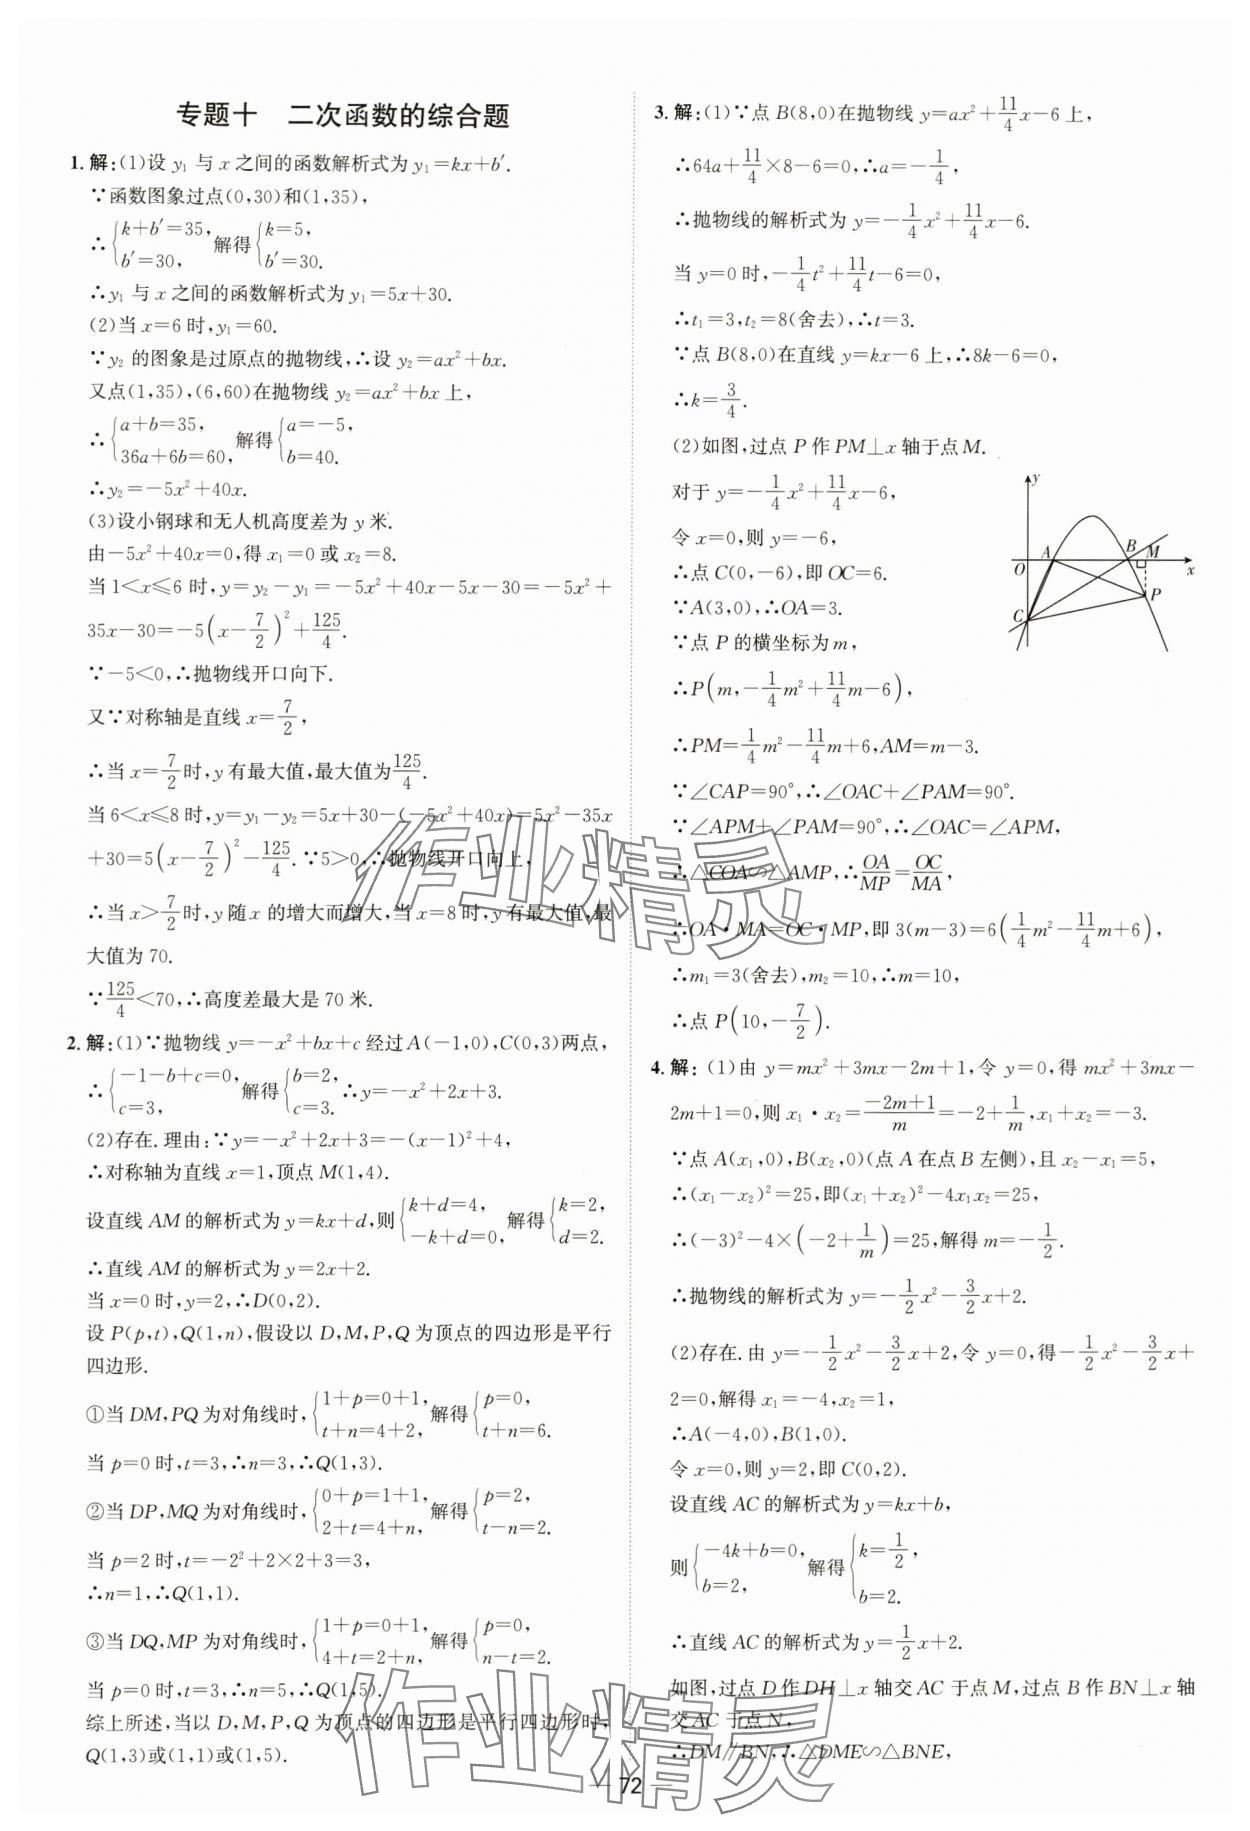 专题十　二次函数的综合题
1.解:(1)设 y₁ 与 x 之间的函数解析式为 y₁=kx+b′.
∵函数图象过点(0,30)和(1,35),
∴{k+b′=35, b′=30, 解得{k=5, b′=30.
∴y₁ 与 x 之间的函数解析式为 y₁=5x+30.
(2)当 x=6 时,y₁=60.
∵y₂ 的图象是过原点的抛物线,∴设 y₂=ax²+bx.
又点(1,35),(6,60)在抛物线 y₂=ax²+bx 上,
∴{a+b=35, 36a+6b=60, 解得{a=-5, b=40.
∴y₂=-5x²+40x.
(3)设小钢球和无人机高度差为 y 米.
由-5x²+40x=0,得 x₁=0 或 x₂=8.
当 1<x≤6 时,y=y₂-y₁=-5x²+40x-5x-30=-5x²+
35x-30=-5(x-7/2)²+125/4.
∵-5<0,∴抛物线开口向下.
又∵对称轴是直线 x=7/2,
∴当 x=7/2时,y 有最大值,最大值为125/4.
当 6<x≤8 时,y=y₁-y₂=5x+30-(-5x²+40x)=5x²-35x
+30=5(x-7/2)²-125/4.∵5>0,∴抛物线开口向上,
∴当 x>7/2时,y 随 x 的增大而增大,当 x=8时,y 有最大值,最
大值为 70.
∵125/4<70,∴高度差最大是 70 米.
2.解:(1)∵抛物线 y=-x²+bx+c 经过 A(-1,0),C(0,3)两点,
∴{-1-b+c=0, c=3, 解得{b=2, c=3. ∴y=-x²+2x+3.
(2)存在.理由:∵y=-x²+2x+3=-(x-1)²+4,
∴对称轴为直线 x=1,顶点 M(1,4).
设直线 AM 的解析式为 y=kx+d,则{k+d=4, -k+d=0, 解得{k=2, d=2.
∴直线 AM 的解析式为 y=2x+2.
当 x=0 时,y=2,∴D(0,2).
设 P(p,t),Q(1,n),假设以 D,M,P,Q 为顶点的四边形是平行
四边形.
①当 DM,PQ 为对角线时,{1+p=0+1, t+n=4+2, 解得{p=0, t+n=6.
当 p=0 时,t=3,∴n=3,∴Q(1,3).
②当 DP,MQ 为对角线时,{0+p=1+1, 2+t=4+n, 解得{p=2, t-n=2.
当 p=2 时,t=-2²+2×2+3=3,
∴n=1,∴Q(1,1).
③当 DQ,MP 为对角线时,{1+p=0+1, 4+t=2+n, 解得{p=0, n-t=2.
当 p=0 时,t=3,∴n=5,∴Q(1,5).
综上所述,当以 D,M,P,Q 为顶点的四边形是平行四边形时,
Q(1,3)或(1,1)或(1,5).
3.解:(1)∵点 B(8,0)在抛物线 y=ax²+11/4x-6 上,
∴64a+11/4×8-6=0,∴a=-1/4,
∴抛物线的解析式为 y=-1/4x²+11/4x-6.
当 y=0 时,-1/4t²+11/4t-6=0,
∴t₁=3,t₂=8(舍去),∴t=3.
∵点 B(8,0)在直线 y=kx-6 上,∴8k-6=0,
∴k=3/4.
(2)如图,过点 P 作 PM⊥x 轴于点 M.
对于 y=-1/4x²+11/4x-6,
令 x=0,则 y=-6,
∴点 C(0,-6),即 OC=6.
∵A(3,0),∴OA=3.
∵点 P 的横坐标为 m,
∴P(m,-1/4m²+11/4m-6),
y
O
A
B
M
x
P
C
∴PM=1/4m²-11/4m+6,AM=m-3.
∵∠CAP=90°,∴∠OAC+∠PAM=90°.
∵∠APM+∠PAM=90°,∴∠OAC=∠APM,
∴△COA∽△AMP,∴OA/MP=OC/MA,
∴OA·MA=OC·MP,即 3(m-3)=6(1/4m²-11/4m+6),
∴m₁=3(舍去),m₂=10,∴m=10,
∴点 P(10,-7/2).
4.解:(1)由 y=mx²+3mx-2m+1,令 y=0,得 mx²+3mx-
2m+1=0,则 x₁·x₂=(-2m+1)/m=-2+1/m,x₁+x₂=-3.
∵点 A(x₁,0),B(x₂,0)(点 A 在点 B 左侧),且 x₂-x₁=5,
∴(x₁-x₂)²=25,即(x₁+x₂)²-4x₁x₂=25,
∴(-3)²-4×(-2+1/m)=25,解得 m=-1/2.
∴抛物线的解析式为 y=-1/2x²-3/2x+2.
(2)存在.由 y=-1/2x²-3/2x+2,令 y=0,得-1/2x²-3/2x+
2=0,解得 x₁=-4,x₂=1,
∴A(-4,0),B(1,0).
令 x=0,则 y=2,即 C(0,2).
设直线 AC 的解析式为 y=kx+b,
则{-4k+b=0, b=2, 解得{k=1/2, b=2.
∴直线 AC 的解析式为 y=1/2x+2.
如图,过点 D 作 DH⊥x 轴交 AC 于点 M,过点 B 作 BN⊥x 轴
交 AC 于点 N,
∴DM∥BN,∴△DME∽△BNE,
72
作业精灵
作业精灵